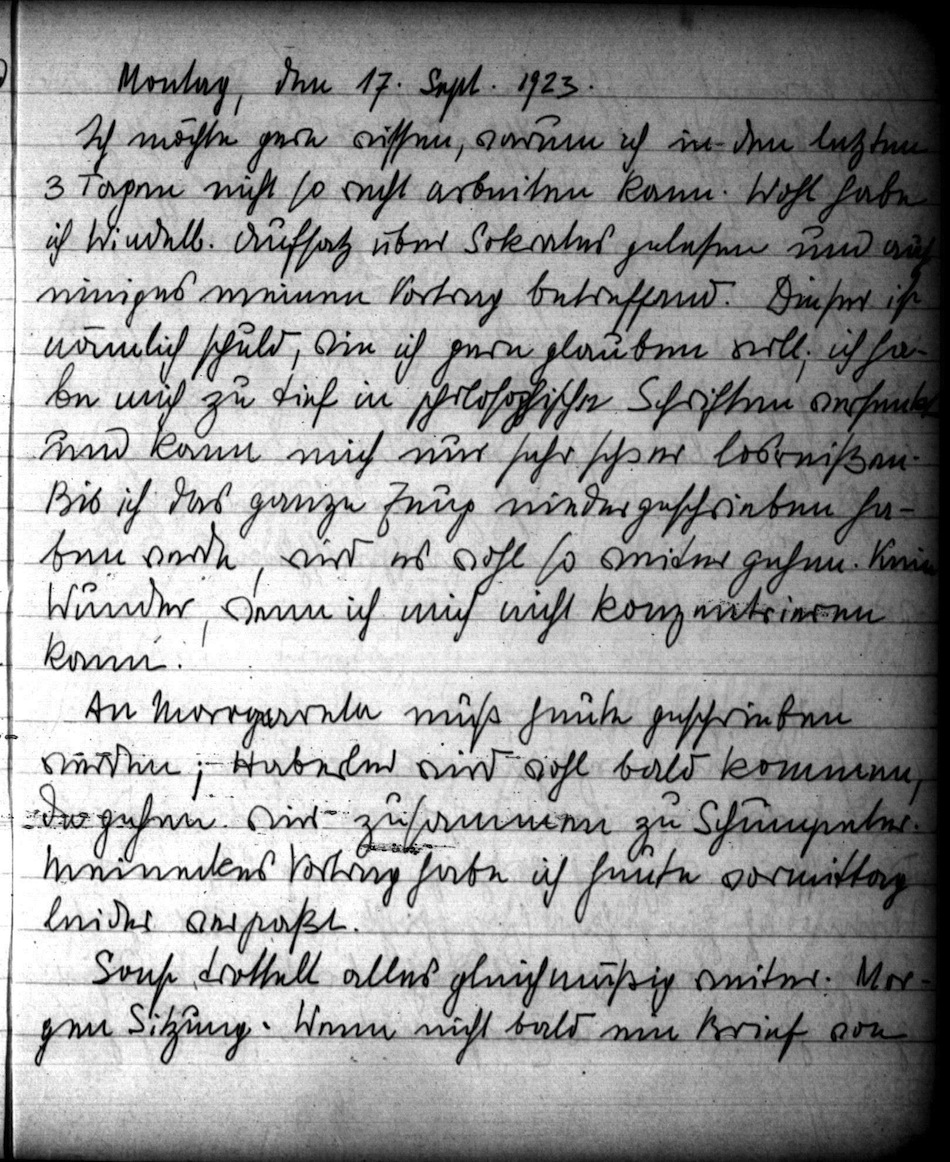 Montag, den 17. Sept. 1923.
Ich möchte gern wissen, warum ich in den letzten
3 Tagen nicht so recht arbeiten kann. Wohl habe
ich Windelb. Aufsatz über Sokrates gelesen und auch
einiges meinen Vortrag betreffend. Dieser ist
nämlich schuld, wie ich gern glauben will; ich ha-
be mich zu tief in philosophische Schriften versenkt
und kann mich nur sehr schwer losreißen.
Bis ich das ganze Zeug niedergeschrieben ha-
ben werde, wird es wohl so weiter gehen. Kein
Wunder, wenn ich mich nicht konzentrieren
kann.
An Margarete muß heute geschrieben
werden; Haberler wird wohl bald kommen,
da gehen wir zusammen zu Schumpeter.
Meineckes Vortrag habe ich heute vormittag
leider verpaßt.
Sonst trottelt alles gleichmäßig weiter. Mor-
gen Sitzung. Wenn nicht bald ein Brief von